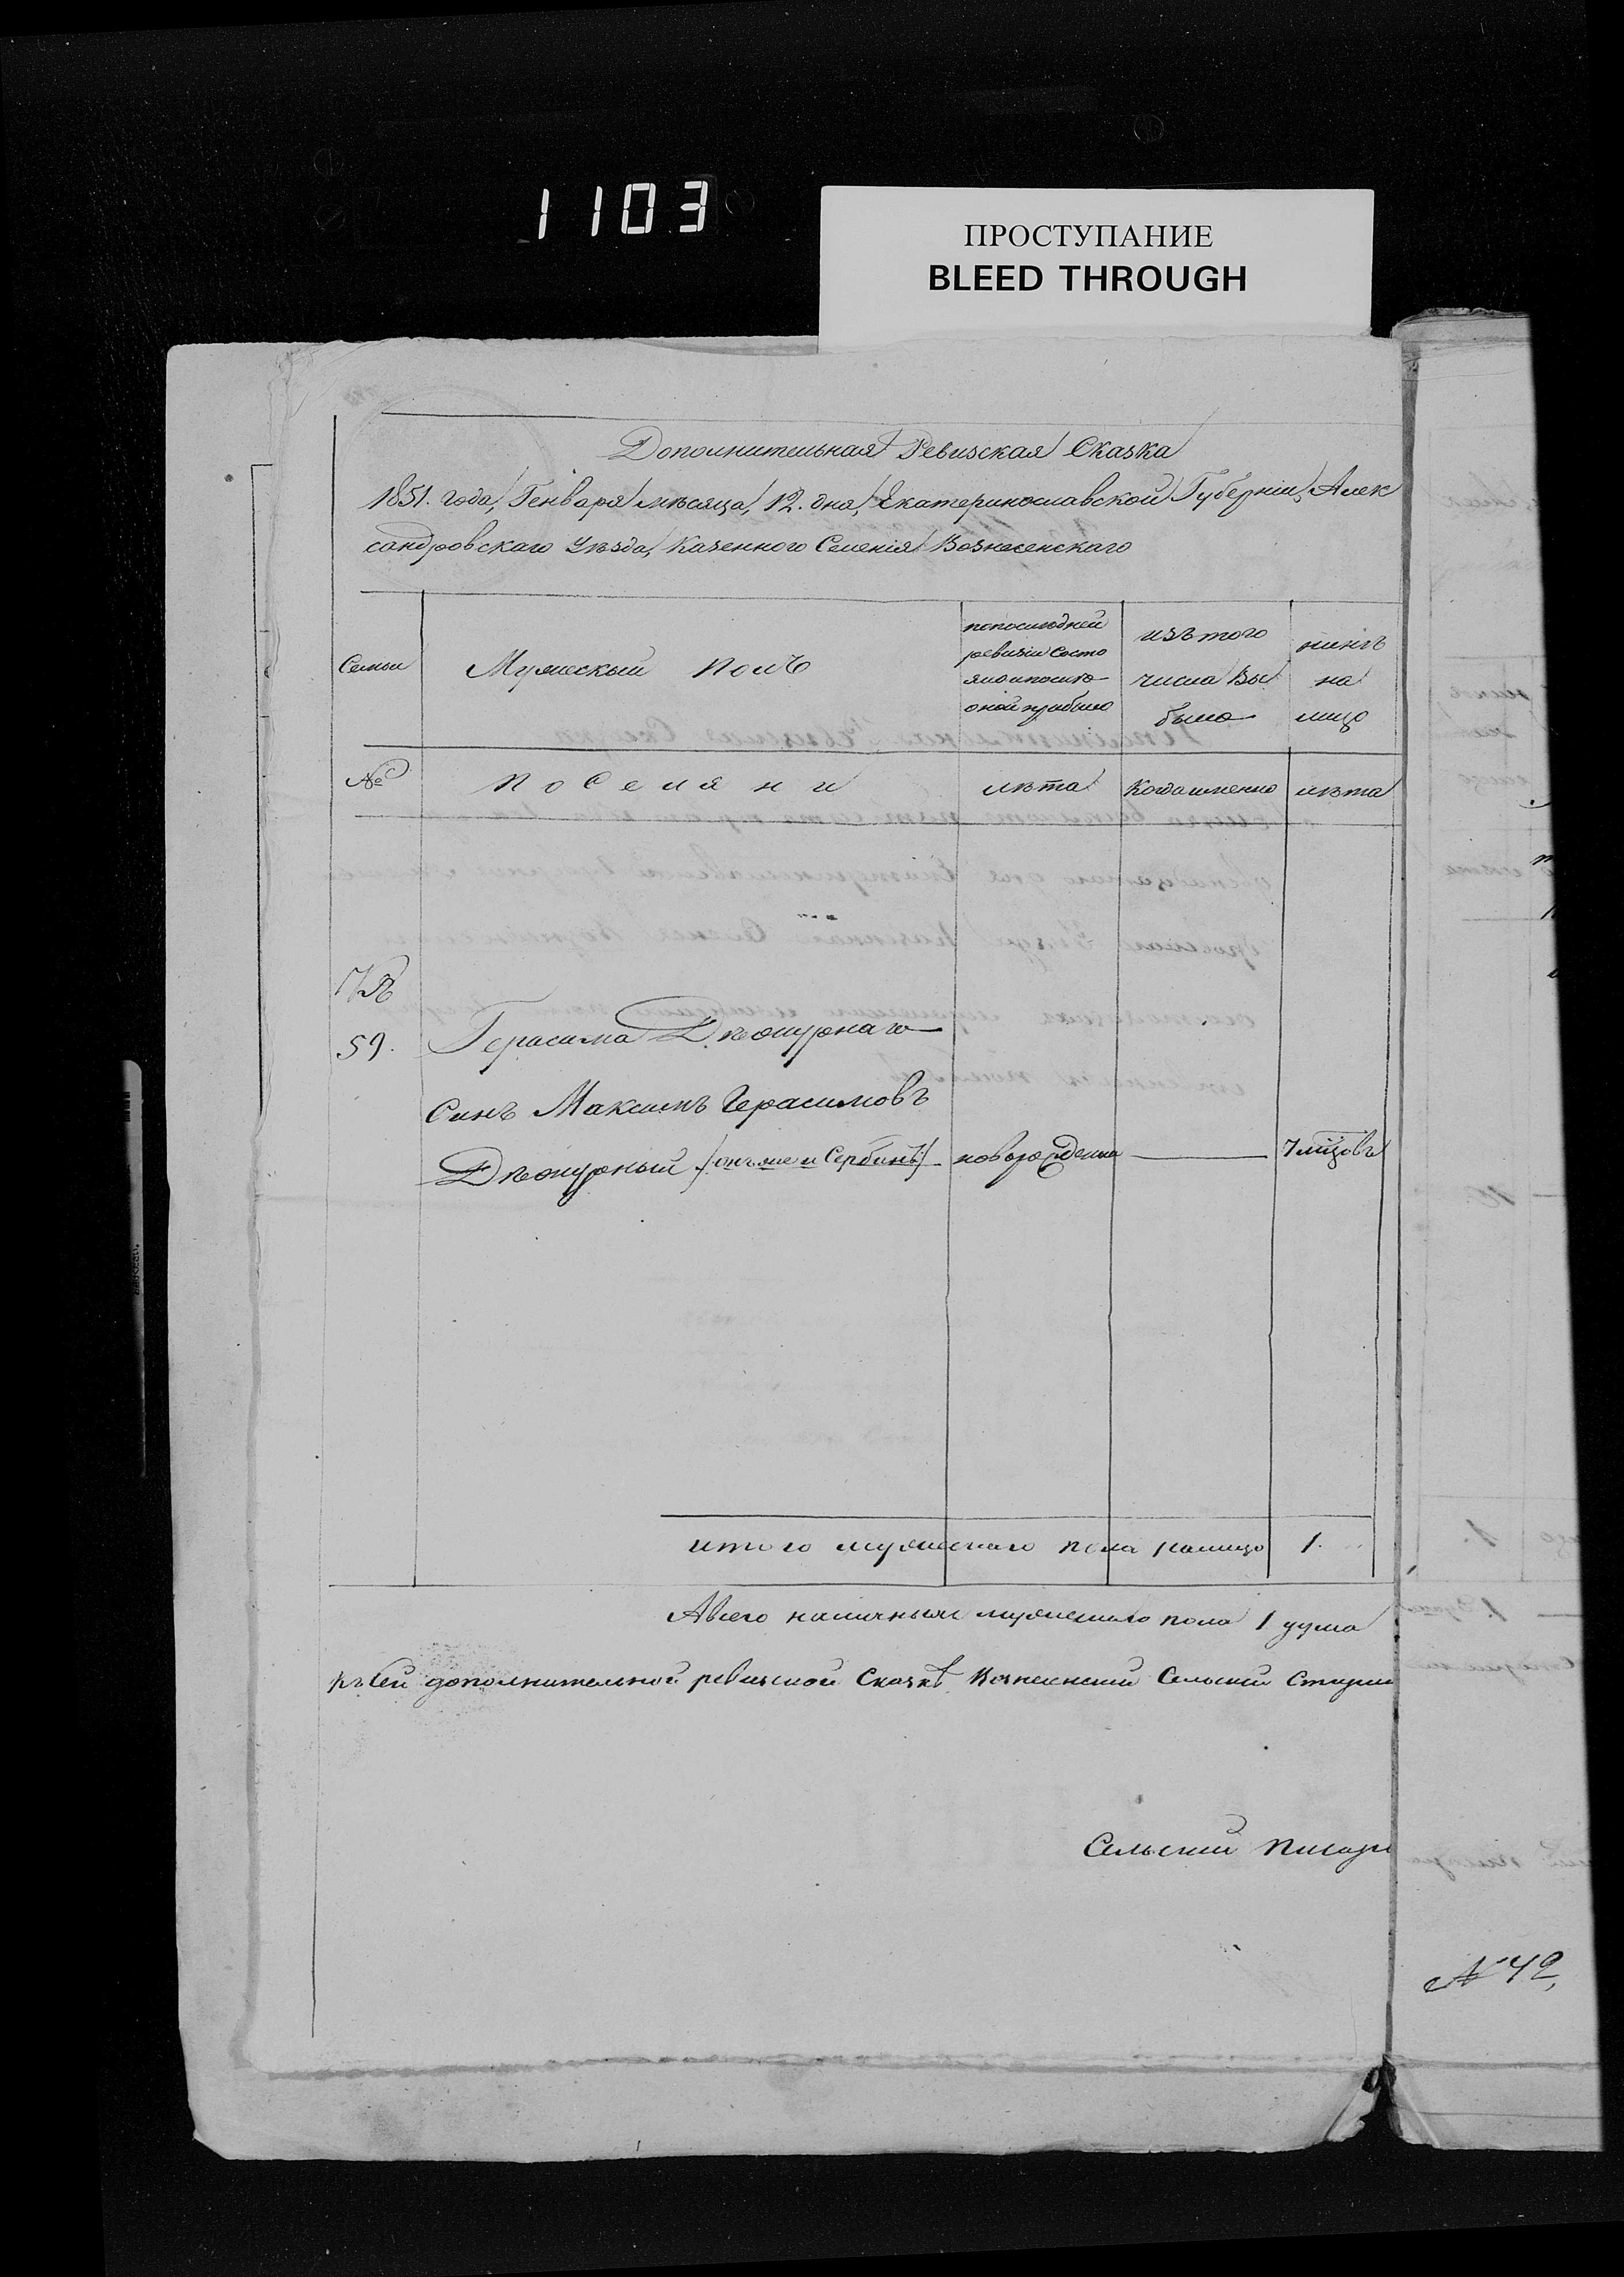 1103
ПРОСТУПАНИЕ
BLEED THROUGH
Дополнительная Ревизская Сказка
1851. года, Генваря мѣсяца, 12. дня, Екатеринославской Губерніи, Алек
сандровскаго Уѣзда, Казенного Селенія Вознесенскаго
Семьи
Мужескый полъ
попослѣдней
ревизіи состо
яло и послѣ
оной прибыло
изъ того
числа вы
было
нинѣ
на
лицо
№
поселяни
лѣта
Когда именно
лѣта
Къ
59.
Герасима Дѣжурнаго
Синъ Максимъ Герасимовъ
Дѣжурный /: онъ же и Сербинъ :/
новорожденна
7 мцовъ
итого мужескаго пола налицо
1.
А всего наличныхъ мужескаго пола 1 душа
къ сей дополнительной ревизской Сказкѣ Вознесенский Сельский Старши
Сельский Писарь
№ 42,